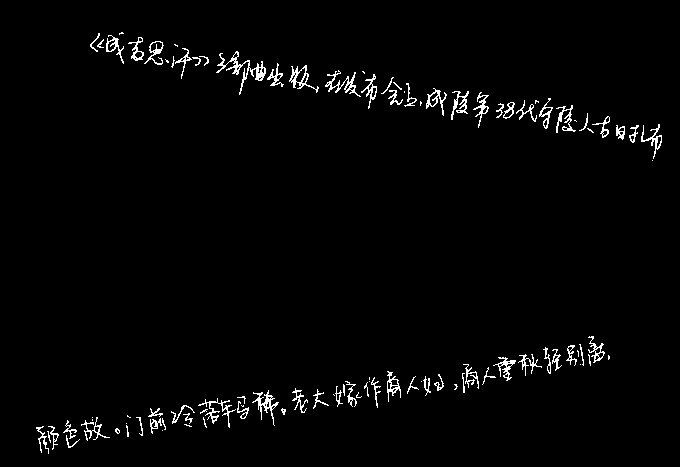 《成吉思汗》三部曲出版,在发布会上,成陵第38代守陵人古日扎布
颜色故。门前冷落车马稀。老大嫁作商人妇,商人重秋轻别离,